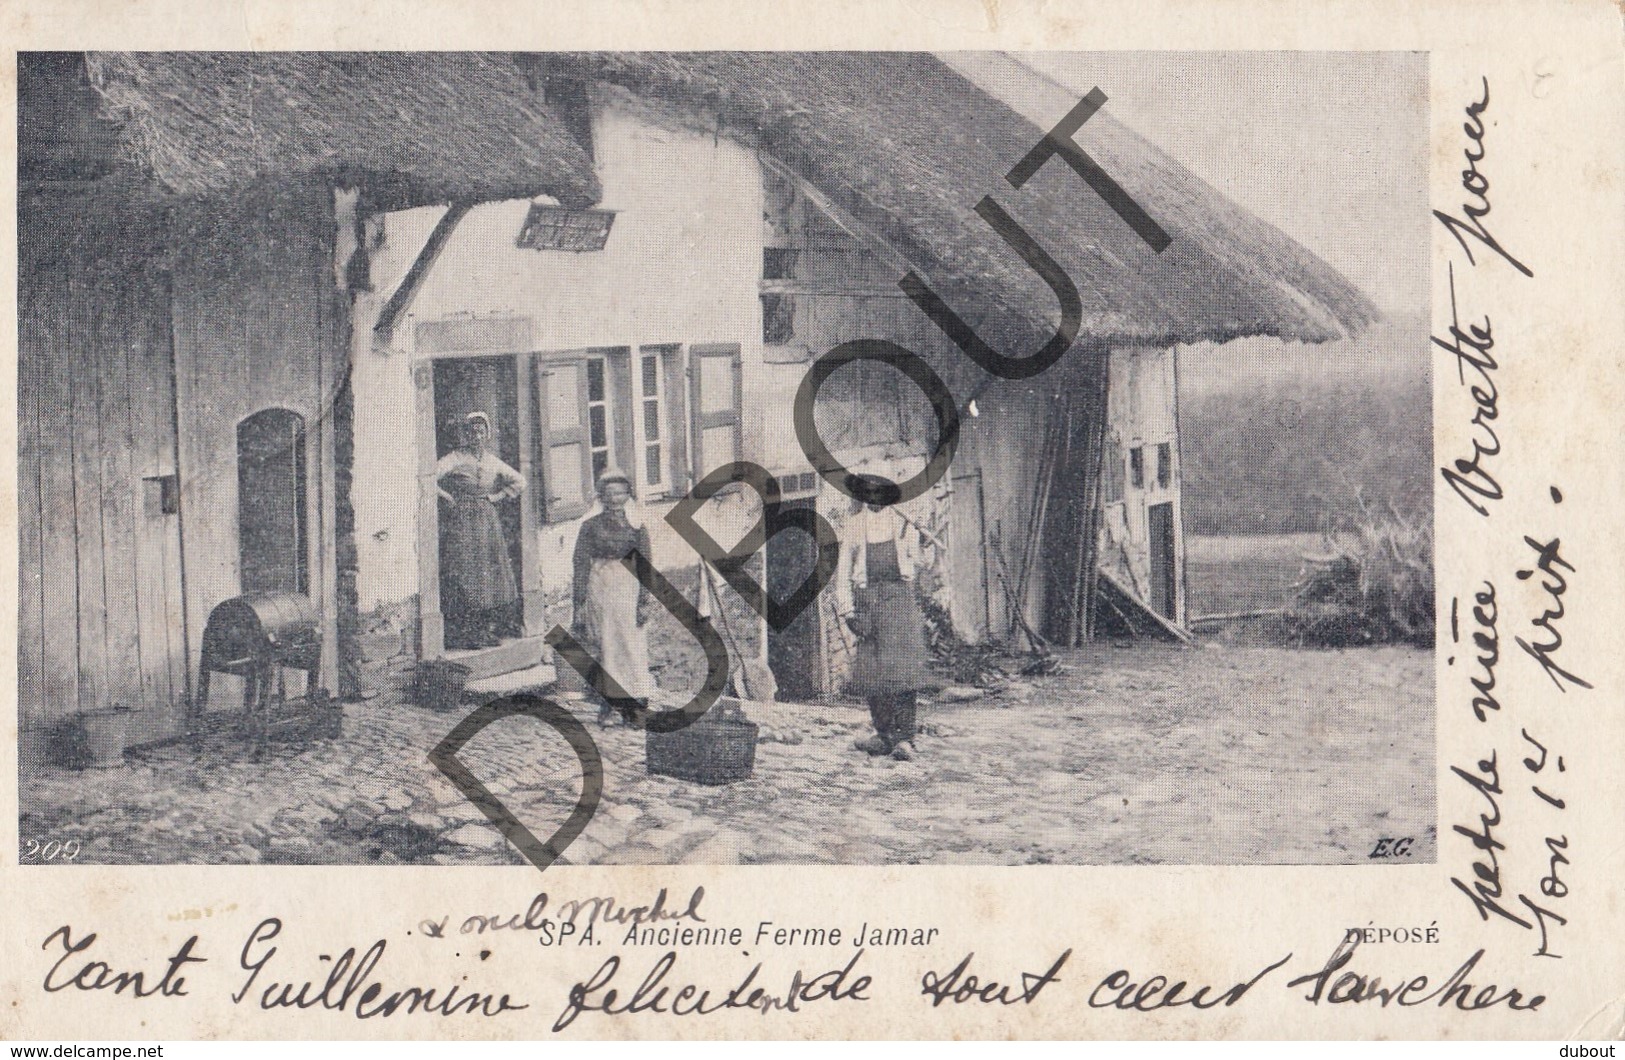 209
E.G.
SPA. Ancienne Ferme Jamar
DÉPOSÉ
& oncle Michel
Tante Guillemine felicitent de tout cœur leur chere
petite nièce Vivette pour
son 1er prix.
DUBOUT
www.delcampe.net
dubout